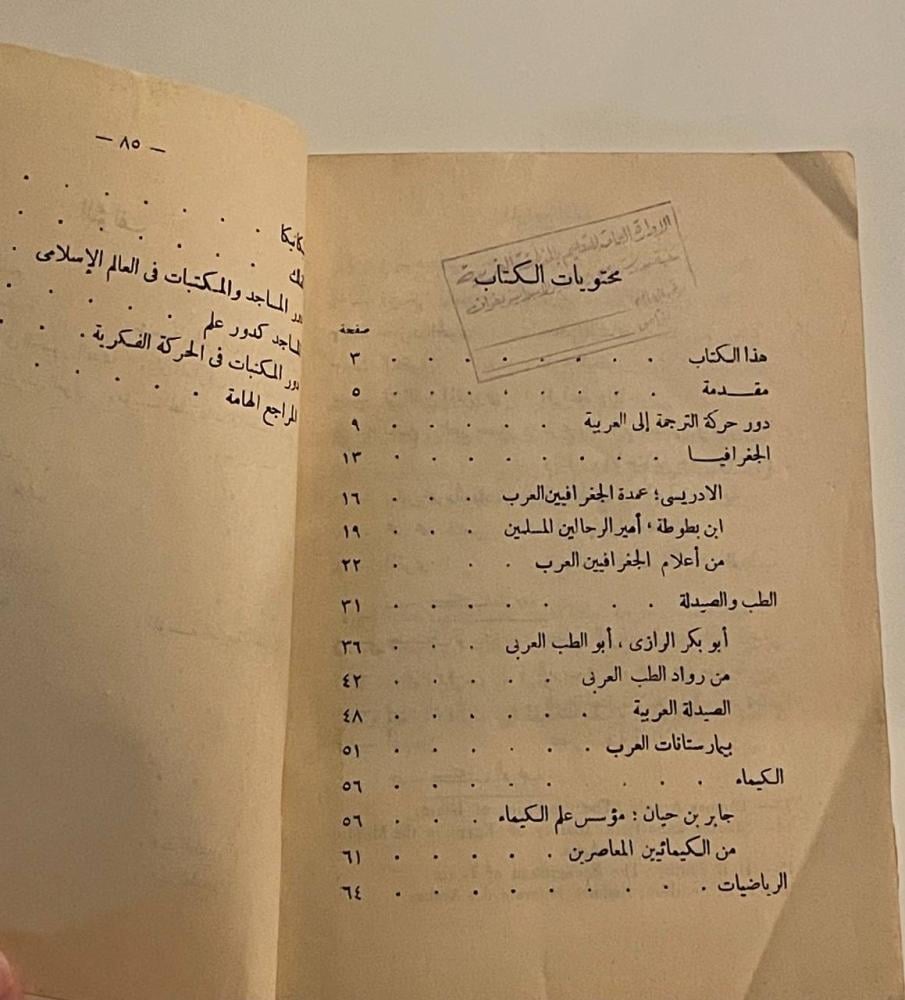 محتويات الكتاب
صفحة
هذا الكتاب . . . . . . . . ٣
مقـــدمة . . . . . . . . ٥
دور حركة الترجمة إلى العربية . . . . . ٩
الجغرافيـــا . . . . . . . . ١٣
الادريسى؛ عمدة الجغرافيين العرب . . . ١٦
ابن بطوطة، أمير الرحالين المسلمين . . . ١٩
من أعلام الجغرافيين العرب . . . . ٢٢
الطب والصيدلة . . . . . . . ٣١
أبو بكر الرازى، أبو الطب العربى . . . ٣٦
من رواد الطب العربى . . . . . ٤٢
الصيدلة العربية . . . . . . ٤٨
بيمارستانات العرب . . . . . . ٥١
الكيماء . . . . . . . . ٥٦
جابر بن حيان : مؤسس علم الكيماء . . . ٥٦
من الكيمائيين المعاصرين . . . . . ٦١
الرياضيات . . . . . . . . . ٦٤
— ٨٥ —
المساجد والمكتبات فى العالم الإسلامى
كدور علم . . . . .
دور المكتبات فى الحركة الفكرية . . .
المراجع الهامة . . . . .